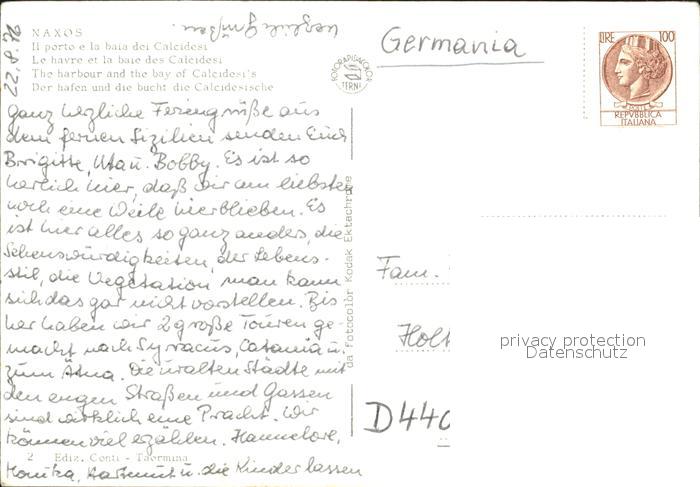 NAXOS
Il porto e la baia dei Calcidesi
Le havre et la baie des Calcidesi
The harbour and the bay of Calcidesi's
Der hafen und die bucht die Calcidesische
Ganz herzliche Feriengrüße aus
dem fernen Sizilien senden Euch
Brigitte, Uta u. Bobby. Es ist so
herrlich hier, daß wir am liebsten
noch eine Weile hierblieben. Es
ist hier alles so ganz anders, die
Sehenswürdigkeiten, der Lebens-
stil, die Vegetation, man kann
sich das gar nicht vorstellen. Bis
her haben wir 2 große Touren ge-
macht nach Syracus, Catania u.
zum Ätna. Die uralten Städte mit
den engen Straßen und Gassen
sind wirklich eine Pracht. Wir
können viel erzählen. Hannelore,
2 Ediz. Conti - Taormina
Monika, Hartmut u. die Kinder lassen
herzlich grüßen.
da Fotocolor Kodak Ektachrome
FOTORAPIDACOLOR
TERNI
Germania
LIRE 100
POSTE
REPVBBLICA
ITALIANA
Fam.
Holt
D440
privacy protection
Datenschutz